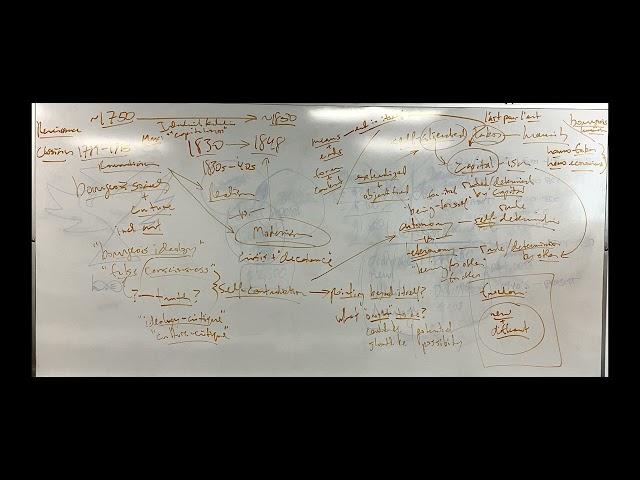 ~1750 → ~1850
Renaissance
Industrial Revolution
Marx: "capitalism"
Classicism 1789-1815
1830 → 1848
1830s-40s
Romanticism
bourgeois society
+
culture
ind art
"bourgeois ideology"
"false consciousness"
? — truth?
"ideology-critique"
"culture-critique"
Realism
-vs-
Modernism
Crisis + decadence
self-contradiction → pointing beyond itself?
what ought to be?
could be | potential
should be | possibility
means
ends
form
content
end in itself
self (alienated) labor — humanity
l'art pour l'art
bourgeois
homo faber
homo economicus
externalized
+
objectified
Capital-ism
social
ruled/determined
by capital
"being-for-itself"
rule
autonomy — self-determination
-vs-
heteronomy — rule/determination
by other
"being" for other
for other
freedom
new
+
different